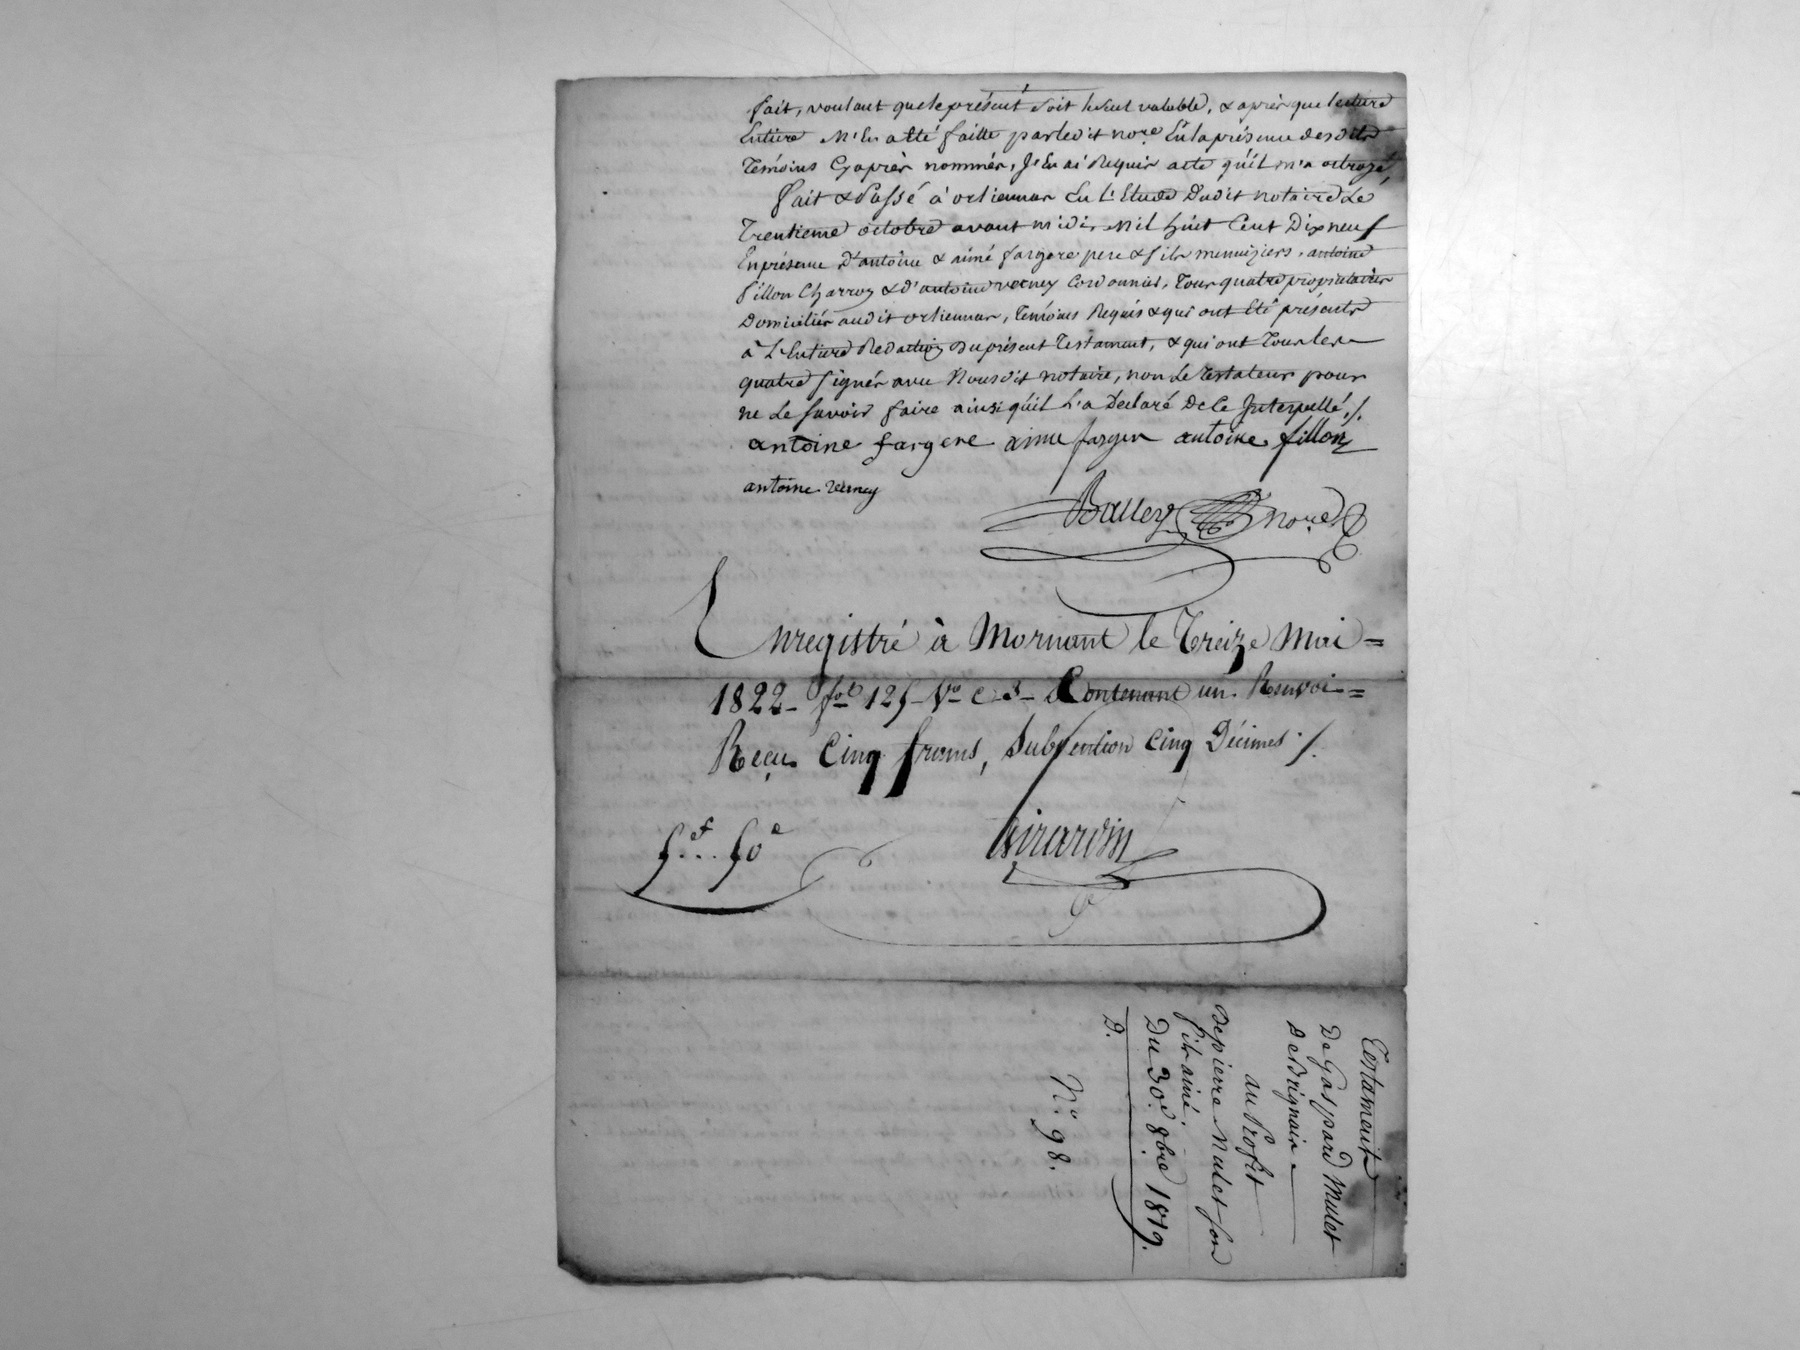 fait, voulant que le présent soit le seul valable, & après que lecture
Entière M'En a été faitte par ledit nore. En la présence desdits
Témoins Cyaprès nommés, J'En ai Requis acte qu'il m'a octroyé,
fait & Passé à orliennas En L'Etude Dudit notaire Le
Trentieme octobre avant midi, mil huit Cent Dix neuf
En présence D'antoine & aimé fargere pere & fils menuiziers, antoine
fillon Charron & d'antoine verney Cordonnier, Tous quatre propriétaires
Domiciliés audit orlienas, Témoins Requis & qui ont Eté présents
à L'Entiere Rédaction du présent Testament, & qui ont Tous les
quatre signés avec Nousdit notaire, non Le Testateur pour
ne Le savoir faire ainsi qu'il L'a Déclaré De ce Interpellé ./.
antoine fargere aime farger antoine fillon
antoine verney
Balley nore
Enregistré à Mornant le Treize Mai =
1822 - fol. 125 - Vo C 3 - Contenant un Renvoi =
Reçu Cinq francs, Subvention Cinq Décimes ./.
5.f.. 50c
Girardin
Testament
De Gaspard Mulet
De
au Profit
De pierre Mulet son
fils ainé.
Du 30e. 8bre 1819.
2.
No. 98.